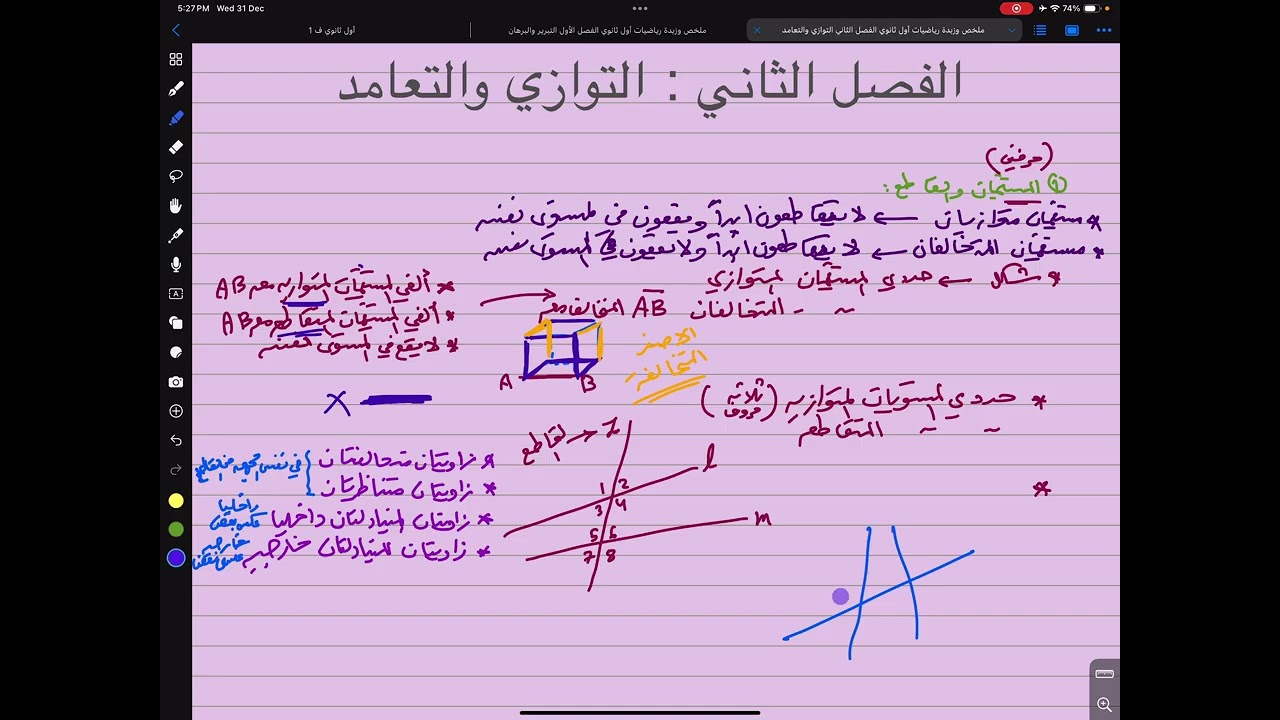 5:27 PM Wed 31 Dec
74%
أول ثانوي ف 1
ملخص وزبدة رياضيات أول ثانوي الفصل الأول التبرير والبرهان
ملخص وزبدة رياضيات أول ثانوي الفصل الثاني التوازي والتعامد
الفصل الثاني : التوازي والتعامد
① المستقيمان والقاطع :
* مستقيمان متوازيان ← لا يتقاطعون ابداً ويقعون في المستوى نفسه
* مستقيمان المتخالفان ← لا يتقاطعون ابداً ولا يقعون في المستوى نفسه
* شكل ← حددي المستقيمان المتوازي
~ - المتخالفان AB المتخالفه مع
* ألغي المستقيمات المتوازيه مع AB
* ألغي المستقيمات المتقاطع مع AB
* لا يقع في المستوى نفسه
الاصفر
المتخالفه
A B
X
* حددي المستويات المتوازيه (ثلاثه حروف)
~ ~ المتقاطع
القاطع ← t
l
m
1 2
3 4
5 6
7 8
* زاويتان متحالفتان
* زاويتان متناظرتان
في نفس الجهه من القاطع
* زاويتان المتبادلتان داخليا
داخليا
عكس بعض
* زاويتان المتبادلتان خارجيه
خارجيه
عكس بعض
*